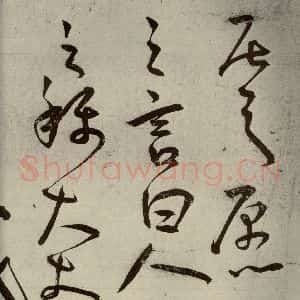 居之愿
之言曰人
之稱大丈
Shufawang.CN